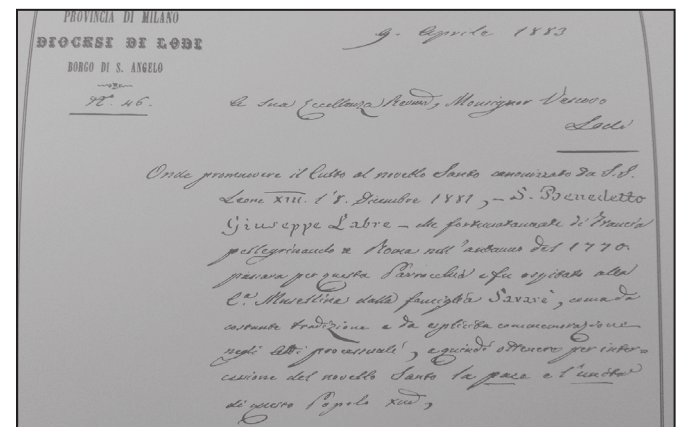 PROVINCIA DI MILANO
DIOCESI DI LODI
BORGO DI S. ANGELO
N.° 46.
9. Aprile 1883
A Sua Eccellenza Revmã, Monsignor Vescovo
Lodi
Onde promuovere il Culto al novello Santo canonizzato da S. S.
Leone XIII. l'8. Dicembre 1881, – S. Benedetto
Giuseppe Labre – che fortunatamente di Francia
pellegrinando a Roma nell'autunno del 1770.
passava per questa Parrocchia e fu ospitato alla
C.ª Musellina dalla famiglia Savarè, come da
costante tradizione e da esplicita commemorazione
negli atti processuali, e quindi ottenere per inter=
cessione del novello Santo la pace e l'unità
di questo Popolo